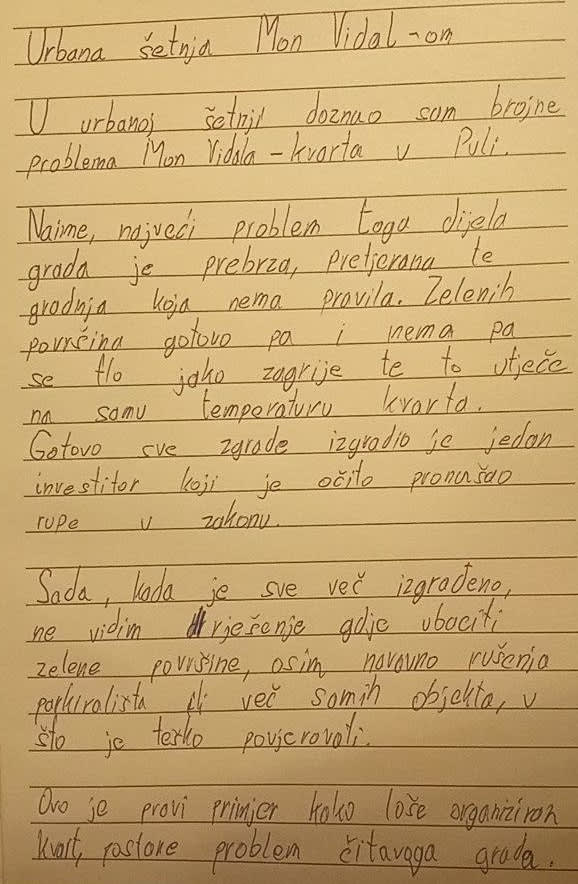 Urbana šetnja Mon Vidal-om
U urbanoj šetnji doznao sam brojne
problema Mon Vidala - kvarta u Puli.
Naime, najveći problem toga dijela
grada je prebrza, pretjerana te
gradnja koja nema pravila. Zelenih
površina gotovo pa i nema pa
se tlo jako zagrije te to utječe
na samu temperaturu kvarta.
Gotovo sve zgrade izgradio je jedan
investitor koji je očito pronašao
rupe u zakonu.
Sada, kada je sve več izgrađeno,
ne vidim rješenje gdje ubaciti
zelene površine, osim naravno rušenja
parkirališta ili več samih objekta, u
što je teško povjerovati.
Ovo je pravi primjer kako loše organiziran
kvart, postane problem čitavoga grada.